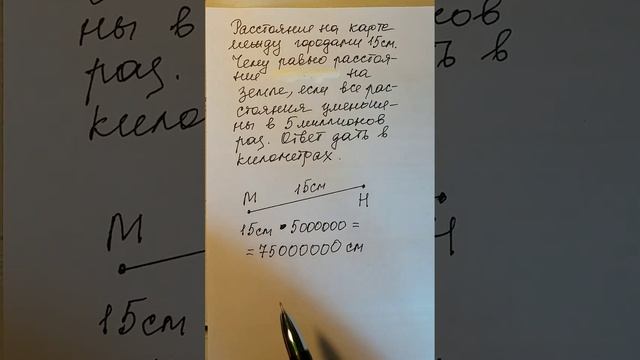 Расстояние на карте
между городами 15см.
Чему равно расстоя-
ние на
земле, если все рас-
стояния уменьше-
ны в 5 миллионов
раз. Ответ дать в
километрах.
15см
М Н
15см • 5000000 =
= 75000000 см